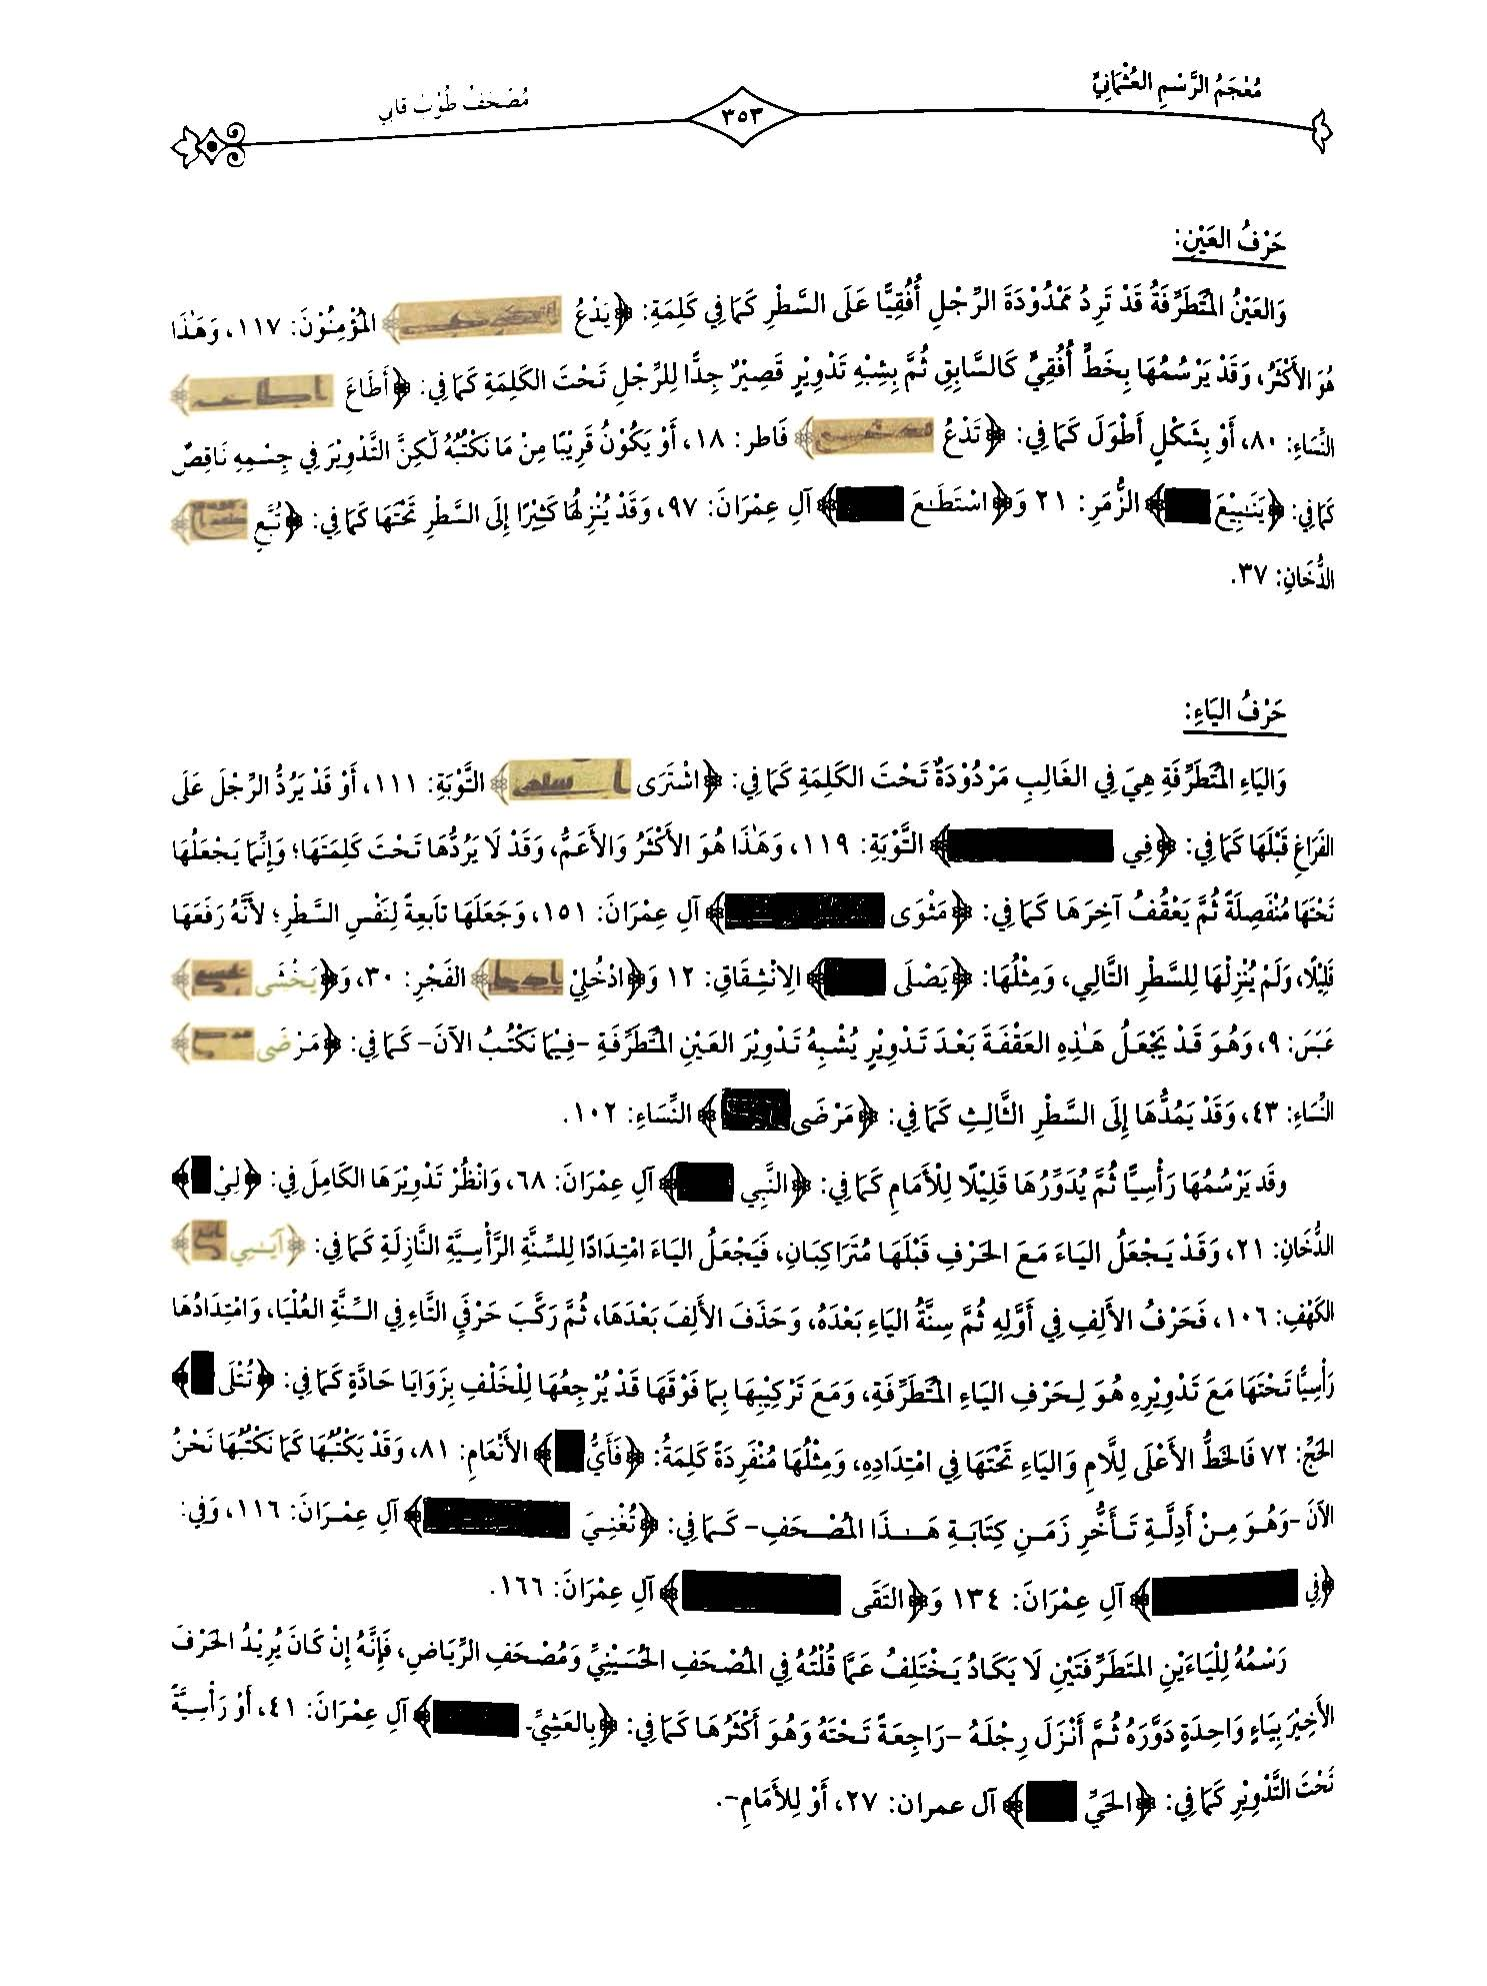 مُعْجَمُ الرَّسْمِ العُثْمَانِيِّ
٣٥٣
مُصْحَفُ طُوْبْ قَابِي
حَرْفُ العَيْنِ:
وَالعَيْنُ المُتَطَرِّفَةُ قَدْ تَرِدُ مَمْدُوْدَةَ الرِّجْلِ أُفُقِيًّا عَلَى السَّطْرِ كَمَا فِي كَلِمَةِ: ﴿يَدْعُ ﴾ المُؤْمِنُوْنَ: ١١٧، وَهَٰذَا
هُوَ الأَكْثَرُ، وَقَدْ يَرْسُمُهَا بِخَطٍّ أُفُقِيٍّ كَالسَّابِقِ ثُمَّ بِشِبْهِ تَدْوِيْرٍ قَصِيْرٌ جِدًّا لِلرِّجْلِ تَحْتَ الكَلِمَةِ كَمَا فِي: ﴿أَطَاعَ ﴾
النِّسَاءِ: ٨٠، أَوْ بِشَكْلٍ أَطْوَلَ كَمَا فِي: ﴿تَدْعُ ﴾ فَاطر: ١٨، أَوْ يَكُوْنُ قَرِيْبًا مِنْ مَا نَكْتُبُهُ لَٰكِنَّ التَّدْوِيْرَ فِي جِسْمِهِ نَاقِصٌ
كَمَا فِي: ﴿يَنَٰبِيْعَ ﴾ الزُّمَرِ: ٢١ وَ﴿اسْتَطَٰعَ ﴾ آلِ عِمْرَانَ: ٩٧، وَقَدْ يُنْزِلُهَا كَثِيْرًا إِلَى السَّطْرِ تَحْتَهَا كَمَا فِي: ﴿تُبَّعٍ ﴾
الدُّخَانِ: ٣٧.
حَرْفُ اليَاءِ:
وَاليَاءِ المُتَطَرِّفَةِ هِيَ فِي الغَالِبِ مَرْدُوْدَةٌ تَحْتَ الكَلِمَةِ كَمَا فِي: ﴿اشْتَرَى ﴾ التَّوْبَةِ: ١١١، أَوْ قَدْ يَرُدُّ الرِّجْلَ عَلَى
الفَرَاغِ قَبْلَهَا كَمَا فِي: ﴿فِي ﴾ التَّوْبَةِ: ١١٩، وَهَٰذَا هُوَ الأَكْثَرُ وَالأَعَمُّ، وَقَدْ لَا يَرُدُّهَا تَحْتَ كَلِمَتَهَا؛ وَإِنَّمَا يَجْعَلُهَا
تَحْتَهَا مُنْفَصِلَةً ثُمَّ يَعْقُفُ آخِرَهَا كَمَا فِي: ﴿مَثْوَى ﴾ آلِ عِمْرَانَ: ١٥١، وَجَعَلَهَا تَابِعةً لِنَفْسِ السَّطْرِ؛ لأَنَّهُ رَفَعَهَا
قَلِيْلًا، وَلَمْ يُنْزِلْهَا لِلسَّطْرِ التَّالِي، وَمِثْلُهَا: ﴿يَصْلَى ﴾ الِانْشِقَاقِ: ١٢ وَ﴿ادْخُلِيْ ﴾ الفَجْرِ: ٣٠، وَ﴿يَخْشَى ﴾
عَبَسَ: ٩، وَهُوَ قَدْ يَجْعَلُ هَٰذِهِ العَقْفَةَ بَعْدَ تَدْوِيْرٍ يُشْبِهُ تَدْوِيْرَ العَيْنِ المُتَطَرِّفَةِ -فِيْمَا نَكْتُبُ الآنَ- كَمَا فِي: ﴿مَرْضَى ﴾
النِّسَاءِ: ٤٣، وَقَدْ يَمُدُّهَا إِلَى السَّطْرِ الثَّالِثِ كَمَا فِي: ﴿مَرْضَى ﴾ النِّسَاءِ: ١٠٢.
وقَد يَرْسُمُهَا رَأْسِيًّا ثُمَّ يُدَوِّرُهَا قَلِيْلًا لِلْأَمَامِ كَمَا فِي: ﴿النَّبِي ﴾ آلِ عِمْرَانَ: ٦٨، وَانْظُرْ تَدْوِيْرَهَا الكَامِلَ فِي: ﴿لِيْ ﴾
الدُّخَانِ: ٢١، وَقَدْ يَجْعَلُ اليَاءَ مَعَ الحَرْفِ قَبْلَهَا مُتَرَاكِبَانِ، فَيَجْعَلُ اليَاءَ امْتِدَادًا لِلسِّنَّةِ الرَّأْسِيَّةِ النَّازِلَةِ كَمَا فِي: ﴿آيَٰتِي ﴾
الكَهْفِ: ١٠٦، فَحَرْفُ الأَلِفِ فِي أَوَّلِهِ ثُمَّ سِنَّةُ اليَاءِ بَعْدَهُ، وَحَذَفَ الأَلِفَ بَعْدَهَا، ثُمَّ رَكَّبَ حَرْفَيِ التَّاءِ فِي السِّنَّةِ العُلْيَا، وَامْتِدَادُهَا
رَأْسِيًّا تَحْتَهَا مَعَ تَدْوِيْرِهِ هُوَ لِحَرْفِ اليَاءِ المُتَطَرِّفَةِ، وَمَعَ تَرْكِيْبِهَا بِمَا فَوْقَهَا قَدْ يُرْجِعُهَا لِلْخَلْفِ بِزَوَايَا حَادَّةٍ كَمَا فِي: ﴿تُتْلَى ﴾
الحَجِّ: ٧٢ فَالخَطُّ الأَعْلَى لِلَّامِ وَاليَاءِ تَحْتَهَا فِي امْتِدَادِهِ، وَمِثْلُهَا مُنْفَرِدَةً كَلِمَةُ: ﴿فَأَيُّ ﴾ الأَنْعَامِ: ٨١، وَقَدْ يَكْتُبُهَا كَمَا نَكْتُبُهَا نَحْنُ
الآنَ -وَهُوَ مِنْ أَدِلَّةِ تَأَخُّرِ زَمَنِ كِتَابَةِ هَٰذَا المُصْحَفِ- كَمَا فِي: ﴿تُغْنِيَ ﴾ آلِ عِمْرَانَ: ١١٦، وَفِي:
﴿فِي ﴾ آلِ عِمْرَانَ: ١٣٤ وَ﴿التَقَى ﴾ آلِ عِمْرَانَ: ١٦٦.
رَسْمُهُ لِلْيَاءَيْنِ المتَطَرِّفَتَيْنِ لَا يَكَادُ يَخْتَلِفُ عَمَّا قُلْتُهُ فِي المُصْحَفِ الحُسَيْنِيِّ وَمُصْحَفِ الرِّيَاضِ، فَإِنَّهُ إِنْ كَانَ يُرِيْدُ الحَرْفَ
الأَخِيْرَ بِيَاءٍ وَاحِدَةٍ دَوَّرَهُ ثُمَّ أَنْزَلَ رِجْلَهُ -رَاجِعَةً تَحْتَهُ وَهُوَ أَكْثَرُهَا كَمَا فِي: ﴿بِالعَشِيِّ ﴾ آلِ عِمْرَانَ: ٤١، أَوْ رَأْسِيَّةً
تَحْتَ التَّدْوِيْرِ كَمَا فِي: ﴿الحَيِّ ﴾ آل عمران: ٢٧، أَوْ لِلأَمَامِ-.